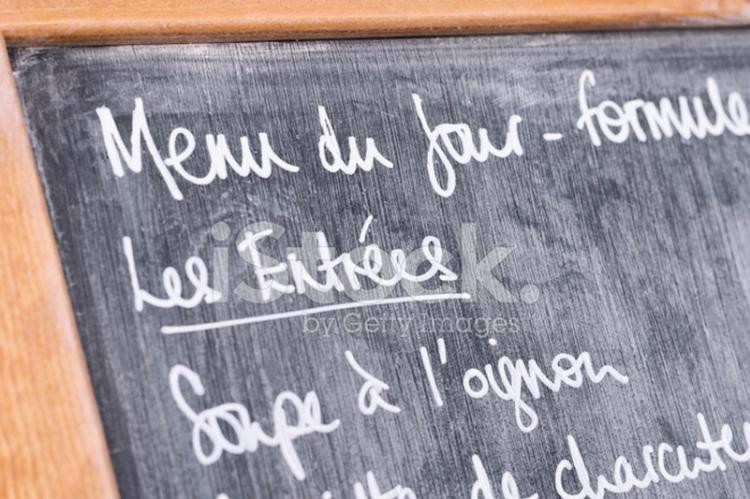 Menu du Jour - formule
Les Entrées
iStock.
by Getty Images
Soupe à l'oignon
de charcuter